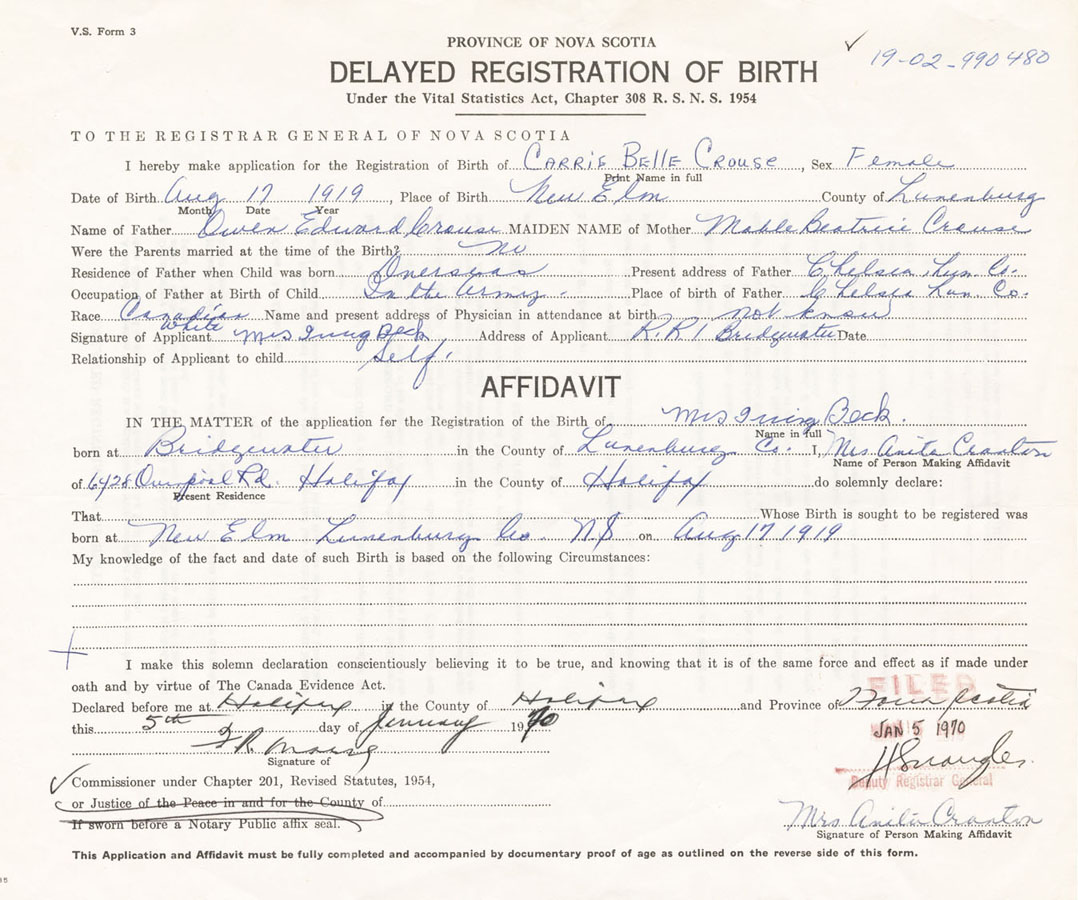 V.S. Form 3
PROVINCE OF NOVA SCOTIA
✓ 19-02-990480
DELAYED REGISTRATION OF BIRTH
Under the Vital Statistics Act, Chapter 308 R. S. N. S. 1954
TO THE REGISTRAR GENERAL OF NOVA SCOTIA
I hereby make application for the Registration of Birth of CARRIE BELLE CROUSE, Sex Female
Print Name in full
Date of Birth Aug 17 1919, Place of Birth New Elm County of Lunenburg
Month Date Year
Name of Father Owen Edward Crouse MAIDEN NAME of Mother Mable Beatrice Crouse
Were the Parents married at the time of the Birth? No
Residence of Father when Child was born Overseas Present address of Father Chelsea Lun. Co.
Occupation of Father at Birth of Child In the Army. Place of birth of Father Chelsea Lun. Co.
Race Canadian Name and present address of Physician in attendance at birth not know
white
Signature of Applicant Mrs Irving Beck Address of Applicant R.R.1 Bridgwater Date
Relationship of Applicant to child Self.
AFFIDAVIT
IN THE MATTER of the application for the Registration of the Birth of Mrs Irving Beck.
Name in full
born at Bridgwater in the County of Lunenburg Co. I, Mrs. Anita Croxton
Name of Person Making Affidavit
of 6428 Rd. Halifax in the County of Halifax do solemnly declare:
Present Residence
That Whose Birth is sought to be registered was
born at New Elm Lunenburg Co. NS on Aug 17 1919
My knowledge of the fact and date of such Birth is based on the following Circumstances:
I make this solemn declaration conscientiously believing it to be true, and knowing that it is of the same force and effect as if made under
oath and by virtue of The Canada Evidence Act.
FILED
Declared before me at Halifax in the County of Halifax and Province of Nova Scotia
this 5th day of January 1970
JAN 5 1970
Signature of
Commissioner under Chapter 201, Revised Statutes, 1954,
Deputy Registrar General
or Justice of the Peace in and for the County of
If sworn before a Notary Public affix seal.
Mrs Anita Croxton
Signature of Person Making Affidavit
This Application and Affidavit must be fully completed and accompanied by documentary proof of age as outlined on the reverse side of this form.